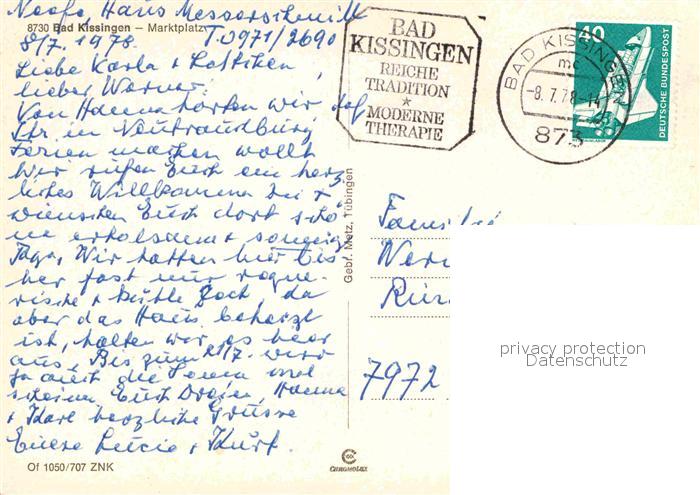 Haus Messerschmitt
8730 Bad Kissingen – Marktplatz
8/7. 1978. T 0971/2690
Liebe Karla +
lieber Werner.
Von Hanna hörten wir, daß
Ihr in
Ferien machen wollt
Wir rufen Euch ein herz
liches Willkommen zu +
wünschen Euch dort schö
ne erholsame + sonnige
Tage. Wir hatten hier bis
her fast nur regne-
rische + kühle doch da
aber das Haus beheizt
ist, halten wir es hier
aus. Bis zum 21/7. wird
ja auch die Sonne mal
scheinen Euch Dreien, Hanna
+ Karl herzliche Grüsse
Eure Lucie + Kurt.
Of 1050/707 ZNK
Gebr. Metz, Tübingen
CHROMOLUX
BAD
KISSINGEN
REICHE
TRADITION
★
MODERNE
THERAPIE
BAD KISSINGEN
mc
-8.7.78-14
873
40
DEUTSCHE BUNDESPOST
Familie
7972
privacy protection
Datenschutz